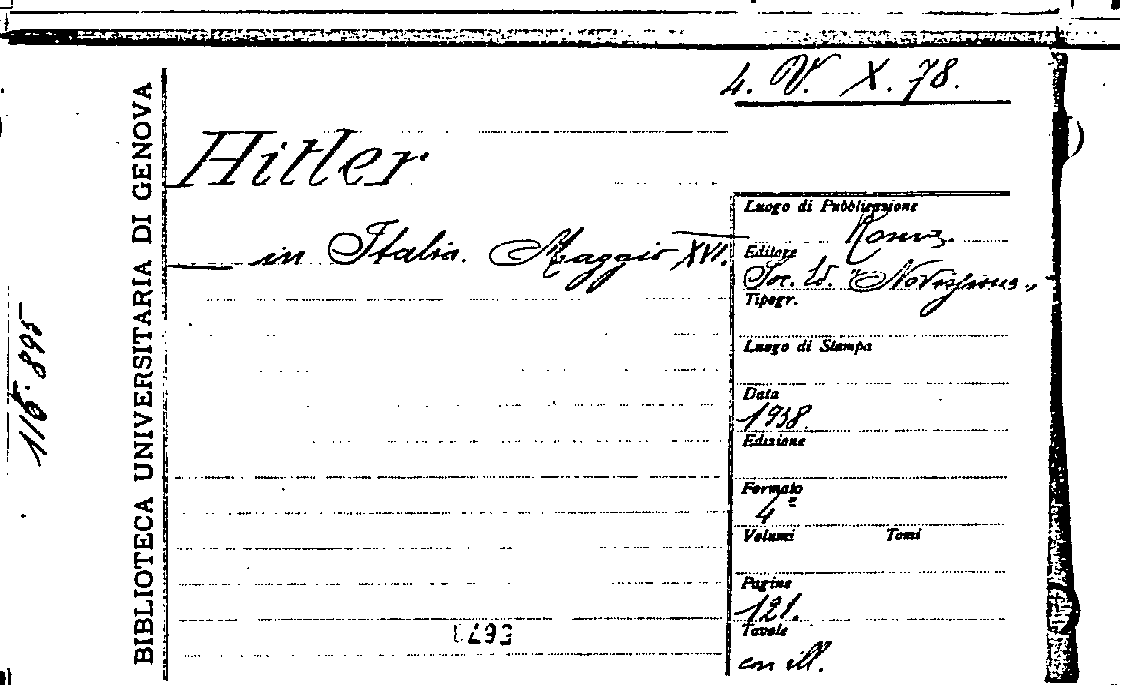 4. V. X. 78.
BIBLIOTECA UNIVERSITARIA DI GENOVA
116.895
Hitler
in Italia. Maggio XVI.
Luogo di Pubblicazione
Roma.
Editore
Soc. Ed. "Novissima"
Tipogr.
Luogo di Stampa
Data
1938.
Edizione
Formato
4°
Volumi Tomi
Pagine
121.
Tavole
con ill.